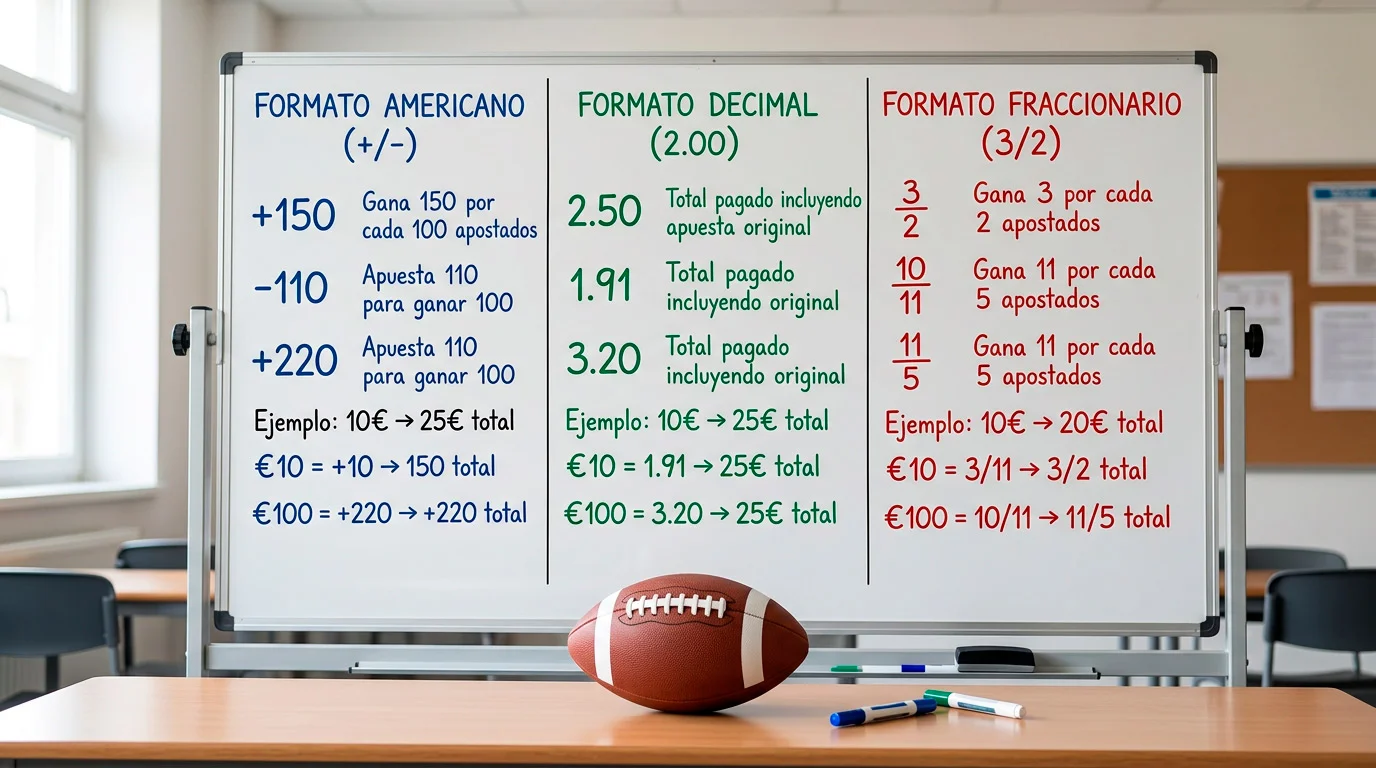 FORMATO AMERICANO
(+/-)
+150
Gana 150 por
cada 100 apostados
-110
Apuesta 110
para ganar 100
+220
Apuesta 110
para ganar 100
Ejemplo: 10€ → 25€ total
€10 = +10 → 150 total
€100 = +220 → +220 total
FORMATO DECIMAL
(2.00)
2.50
Total pagado incluyendo
apuesta original
1.91
Total pagado
incluyendo original
3.20
Total pagado
incluyendo original
Ejemplo: 10€ → 25€ total
€10 = 1.91 → 25€ total
€100 = 3.20 → 25€ total
FORMATO FRACCIONARIO
(3/2)
3/2
Gana 3 por cada
2 apostados
10/11
Gana 11 por cada
5 apostados
11/5
Gana 11 por cada
5 apostados
Ejemplo: 10€ → 20€ total
€10 = 3/11 → 3/2 total
€100 = 10/11 → 11/5 total